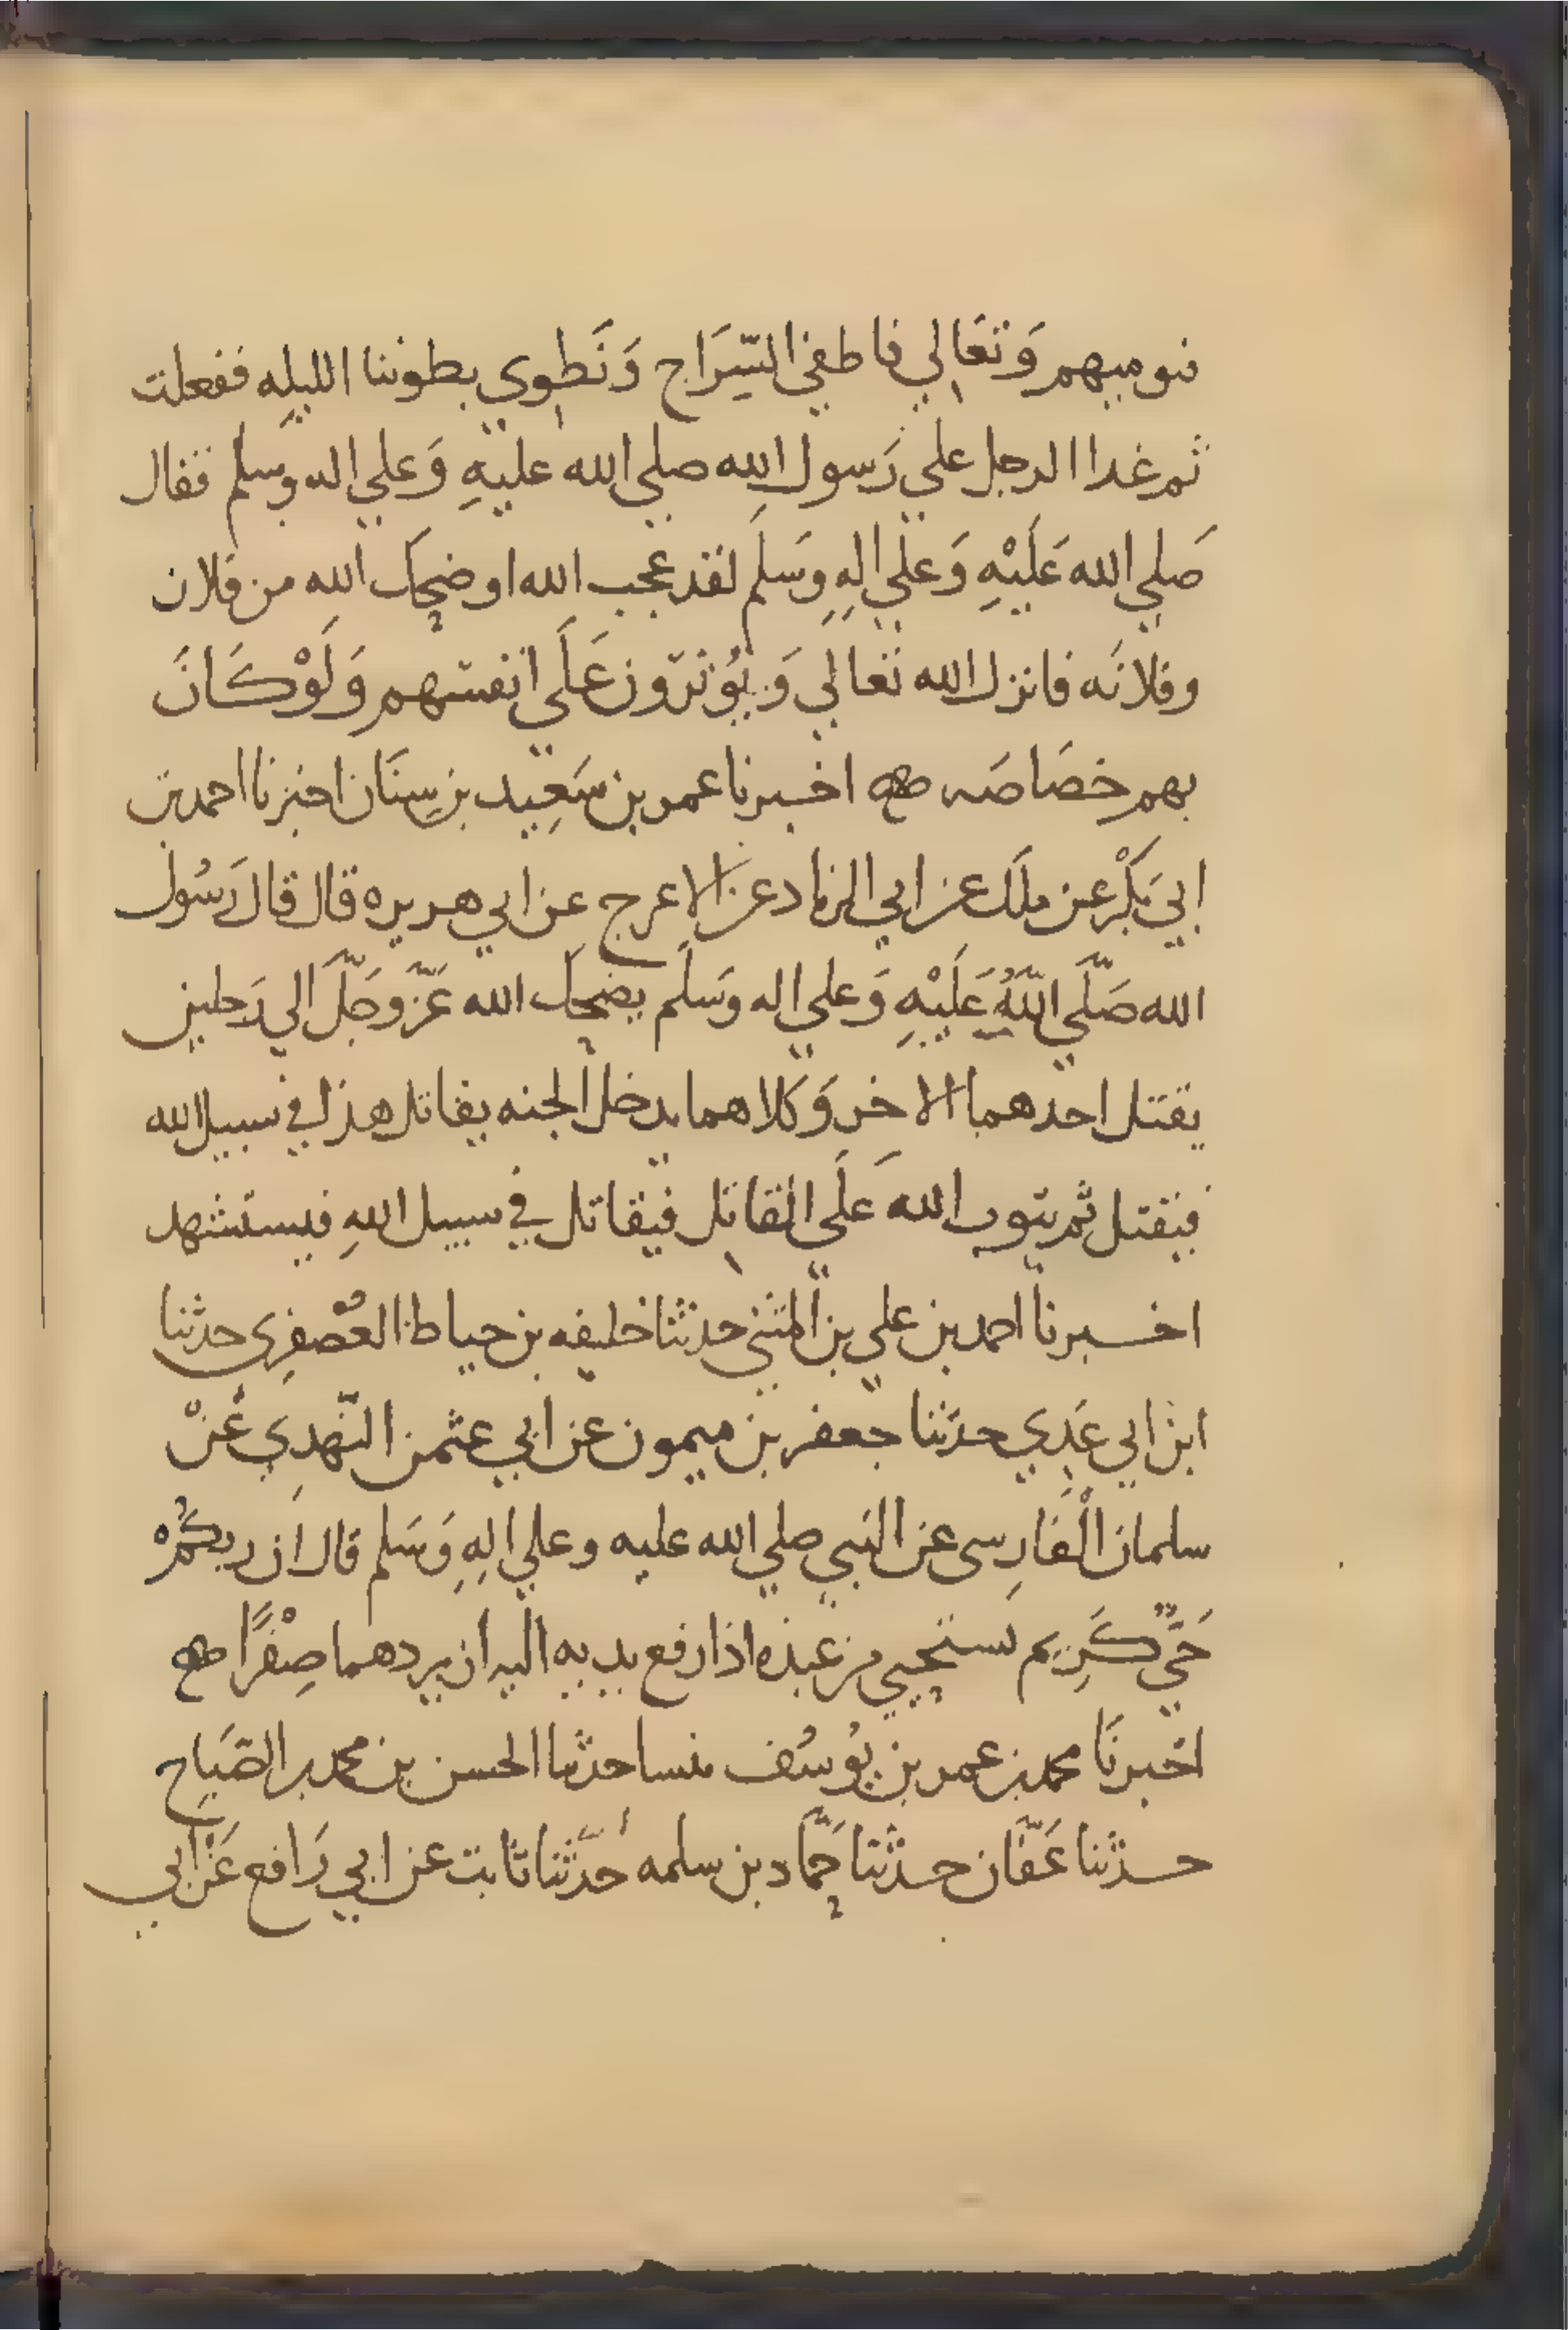 فنوميهم وَتعَالي فاطفي السِّرَاج وَنَطوي بطوننا الليله ففعلت
ثم غدا الرجل علي رَسول الله صلي الله عليهِ وَعلي اله وسلم فقال
صَلي الله عَلَيْهِ وَعلي الهِ وسَلم لقد عجب الله او ضحِك الله من فلان
وفلانَه فانزل الله تعالي وَيُوثرون عَلَي انفسهم وَلَوْ كَانَ
بهم خصَاصَه اخبرنا عمر بن سَعِيد بن سِنَان اخبرنا احمد بن
ابي بَكْر عن ملك عن ابي الزناد عن الاعرج عن ابي هريره قال قال رَسُول
الله صَلَّي اللَّهُ عَلَيْهِ وَعلي اله وسَلم يضحك الله عَزّ وجَلّ الي رَجلين
يقتل احدهما الاخر وَكلاهما يدخل الجنه يقاتل هذا في سبيل الله
فيقتل ثم يتوب الله عَلَي القاتِل فيقاتل في سبيل اللهِ فيستشهد
اخبرنا احمد بن علي بن المثني حدثنا خليفه بن خياط العُصفِري حدثنا
ابن ابي عَدِي حدثنا جعفر بن ميمون عن ابي عثمن النّهدِي عَنْ
سلمان الْفَارِسي عن النبي صلي الله عليه وعلي الِهِ وَسَلم قال ان ربكُم
حَيٌّ كَرِيم يستحيي من عبده اذا رفع يديه اليه ان يردهما صِفْرًا
اخبرنَا محمد بن عمر بن يُوسُف بنسا حدثنا الحسن بن محمد بن الصّبَاح
حدثنا عَفّان حدثنا حَمَّاد بن سلمه حَدَّثنا ثابت عن ابي رَافع عَنْ ابي